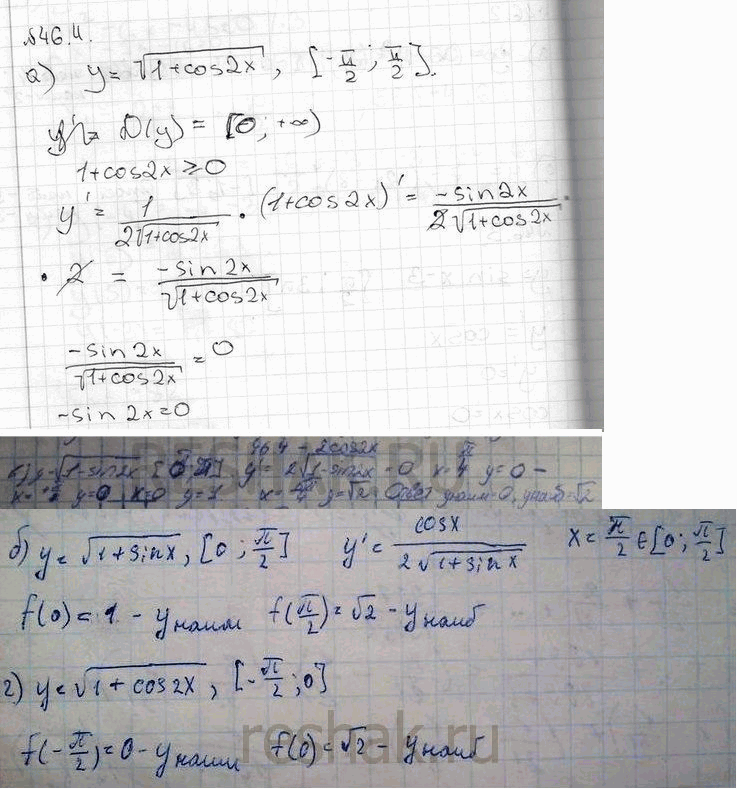 №46.4.
а) y = √(1+cos2x) , [-π/2 ; π/2].
D(y) = [0; +∞)
1+cos2x ≥ 0
y' = 1/(2√(1+cos2x)) · (1+cos2x)' = -sin2x/(2√(1+cos2x)) ·
· 2 = -sin2x/√(1+cos2x)
-sin2x/√(1+cos2x) = 0
-sin2x=0
46.4 -2cos2x
y=√(1-sin2x) y' = 2√(1-sin2x) =0 x= π/4 y=0 -
y=0 x=0 y=1 y=√2 Ответ yнаим=0, yнаиб=√2
RESHAK.RU
б) y = √(1+sinx), [0 ; π/2] y' = cosx/(2√(1+sinx)) x = π/2 ∈ [0; π/2]
f(0) = 1 - yнаим f(π/2) = √2 - yнаиб
г) y = √(1+cos2x), [-π/2 ; 0]
f(-π/2) = 0 - yнаим f(0) = √2 - yнаиб
reshak.ru